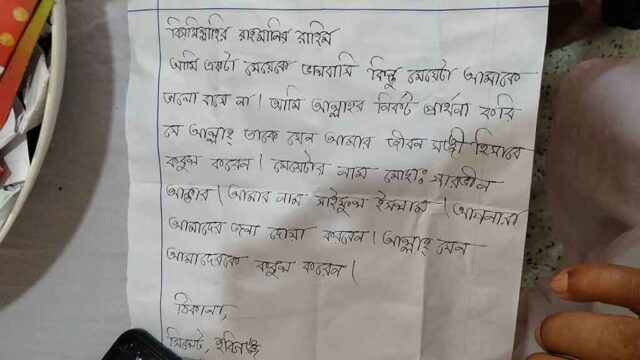 বিসমিল্লাহির রাহমানির রাহিম
আমি একটা মেয়েকে ভালবাসি কিন্তু মেয়েটা আমাকে
ভালো বাসে না। আমি আল্লাহর নিকট প্রার্থনা করি
যে আল্লাহ্ তাকে যেন আমার জীবন সঙ্গী হিসাবে
কবুল করেন। মেয়েটার নাম মোছাঃ পারভীন
আক্তার। আমার নাম সাইফুল ইসলাম। আপনারা
আমাদের জন্য দোয়া করবেন। আল্লাহ্ যেন
আমাদেরকে কবুল করেন।
ঠিকানা,
সিলেট, হবিগঞ্জ